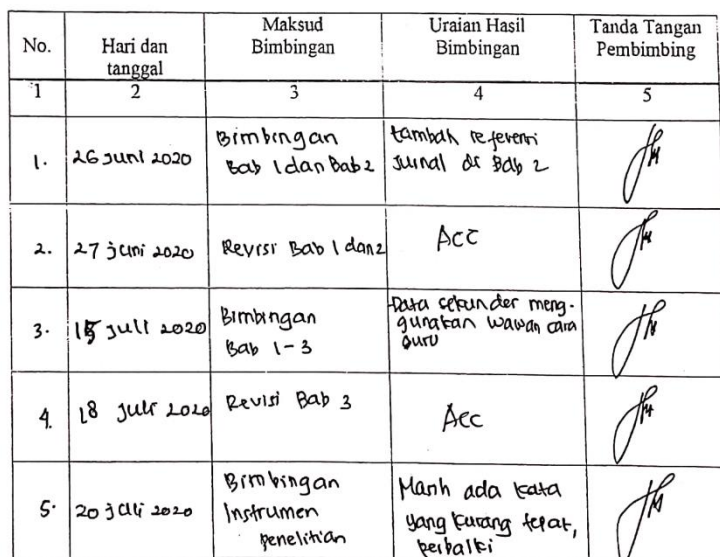 No. Hari dan tanggal Maksud Bimbingan Uraian Hasil Bimbingan Tanda Tangan Pembimbing
1 2 3 4 5
1. 26 Juni 2020 Bimbingan Bab 1 dan Bab 2 tambah referensi Jurnal di Bab 2
2. 27 juni 2020 Revisi Bab 1 dan 2 Acc
3. 15 Juli 2020 Bimbingan Bab 1-3 Data sekunder meng-gunakan wawancara guru
4. 18 Juli 2020 Revisi Bab 3 Acc
5. 20 juli 2020 Bimbingan Instrumen penelitian Masih ada kata yang kurang tepat, perbaiki